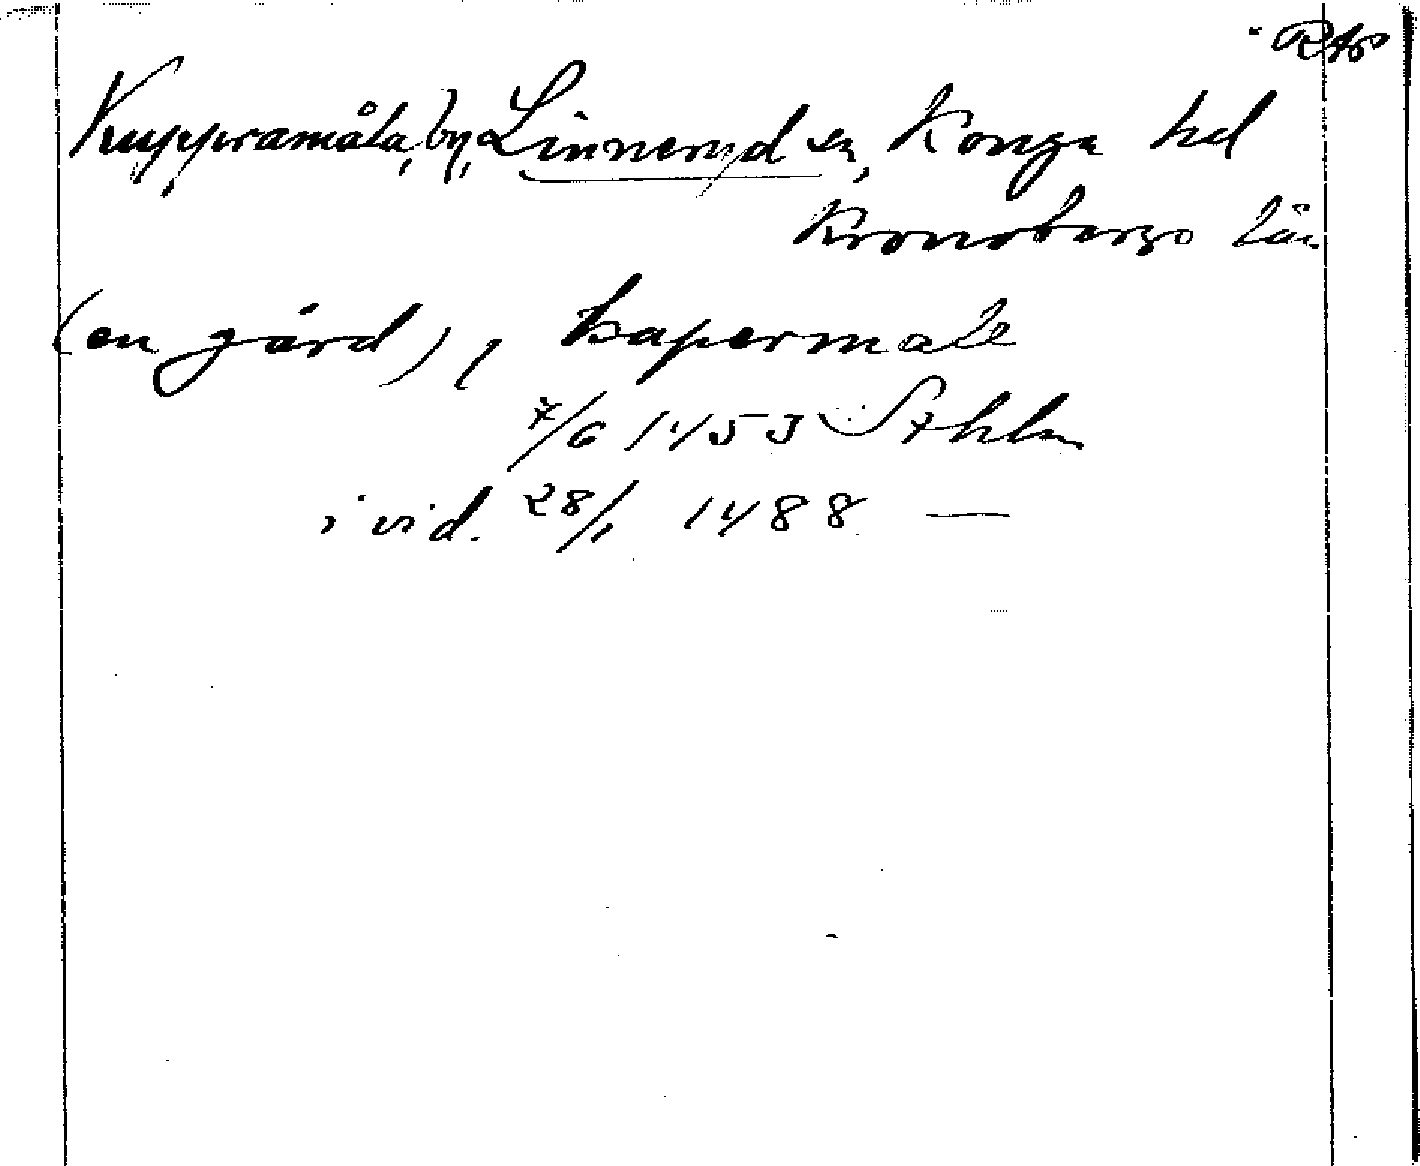 RAp
Kuppramåla, by, Linneryd sn, Konga hd
Kronobergs län
(en gård), i kapermale
7/6 1453 Sthlm
i vid. 28/1 1488 —